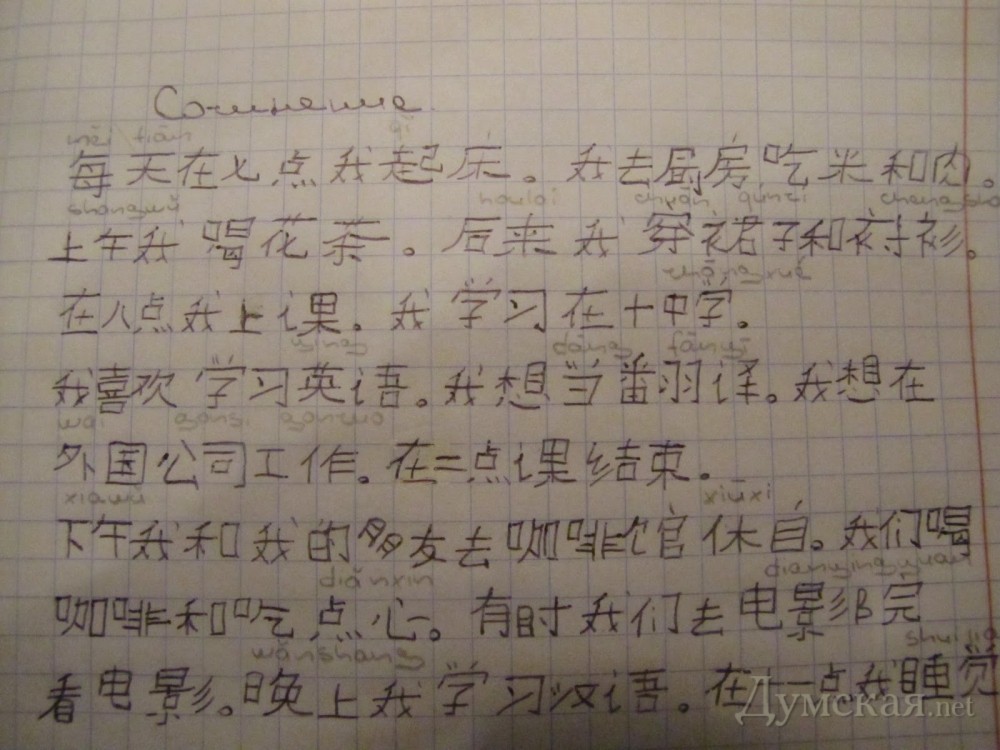 Сочинение.
měi tiān qǐ
每天在七点我起床。我去厨房吃米和肉。
shàngwǔ hòulái chuān qúnzi
上午我喝花茶。后来我穿裙子和衬衫。
zhōngxué
在八点我上课。我学习在十中字。
yīng dāng fānyì
我喜欢学习英语。我想当翻译。我想在
wài gōngsī gōngzuò
外国公司工作。在二点课结束。
xiàwǔ xiūxi
下午我和我的朋友去咖啡馆休自。我们喝
diǎnxīn diànyǐngyuàn
咖啡和吃点心。有时我们去电影院
wǎnshang
看电影。晚上我学习汉语。在十一点我睡觉
Думская.net